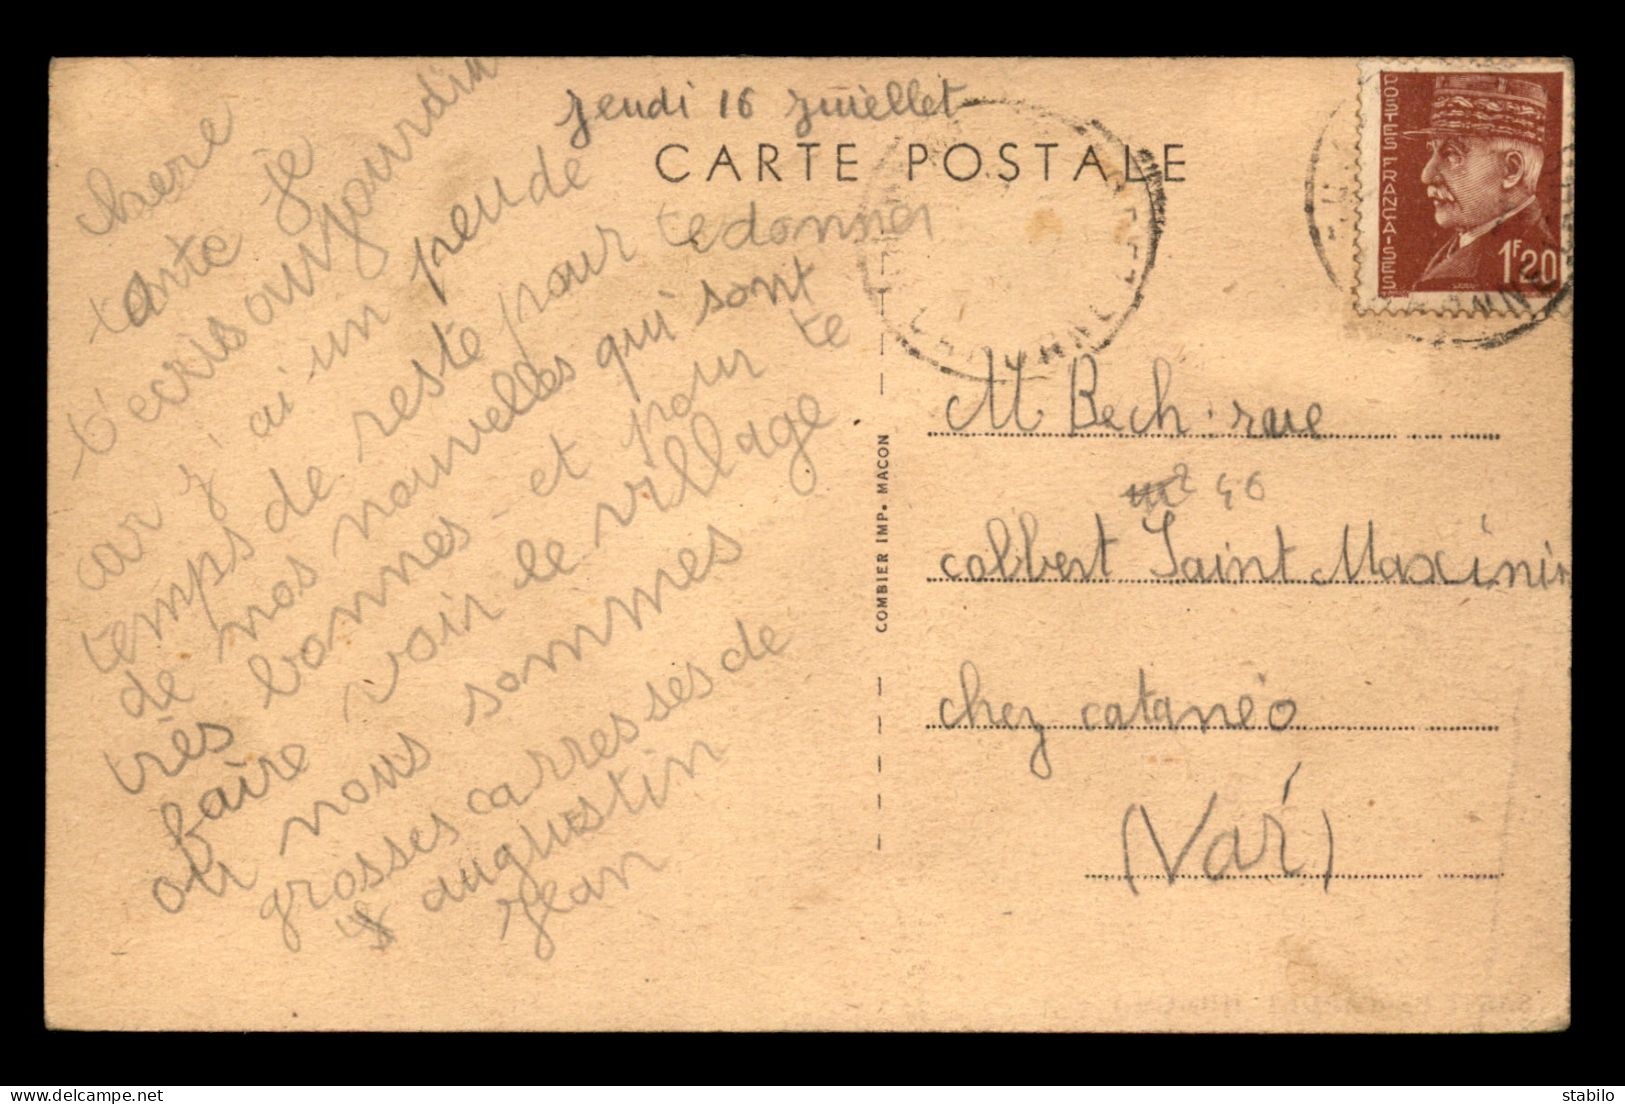 jeudi 16 juiellet
CARTE POSTALE
chere
tante je
t'ecris oujourdin
car j'ai un peu de
temps de reste pour te donner
de nos nouvelles qui sont
très bonnes et pour te
faire voir le village
ou nous sommes
grosses carresses de
augustin
jean
COMBIER IMP. MACON
POSTES FRANÇAISES
1F20
M Bech rue
n° 46
colbert Saint Maximin
chez catanéo
(Var)
stabilo
delcampe.net